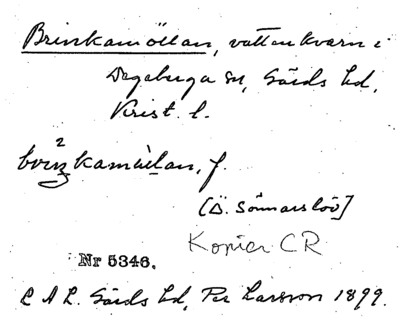 Brinkamöllan, vattenkvarn i
Degeberga sn, Gärds hd,
Krist. l.
kamöllan, f.
[Ö. Sönnarslöv]
Kopier CR
Nr 5346.
C A L. Gärds hd, Per Larsson 1899.